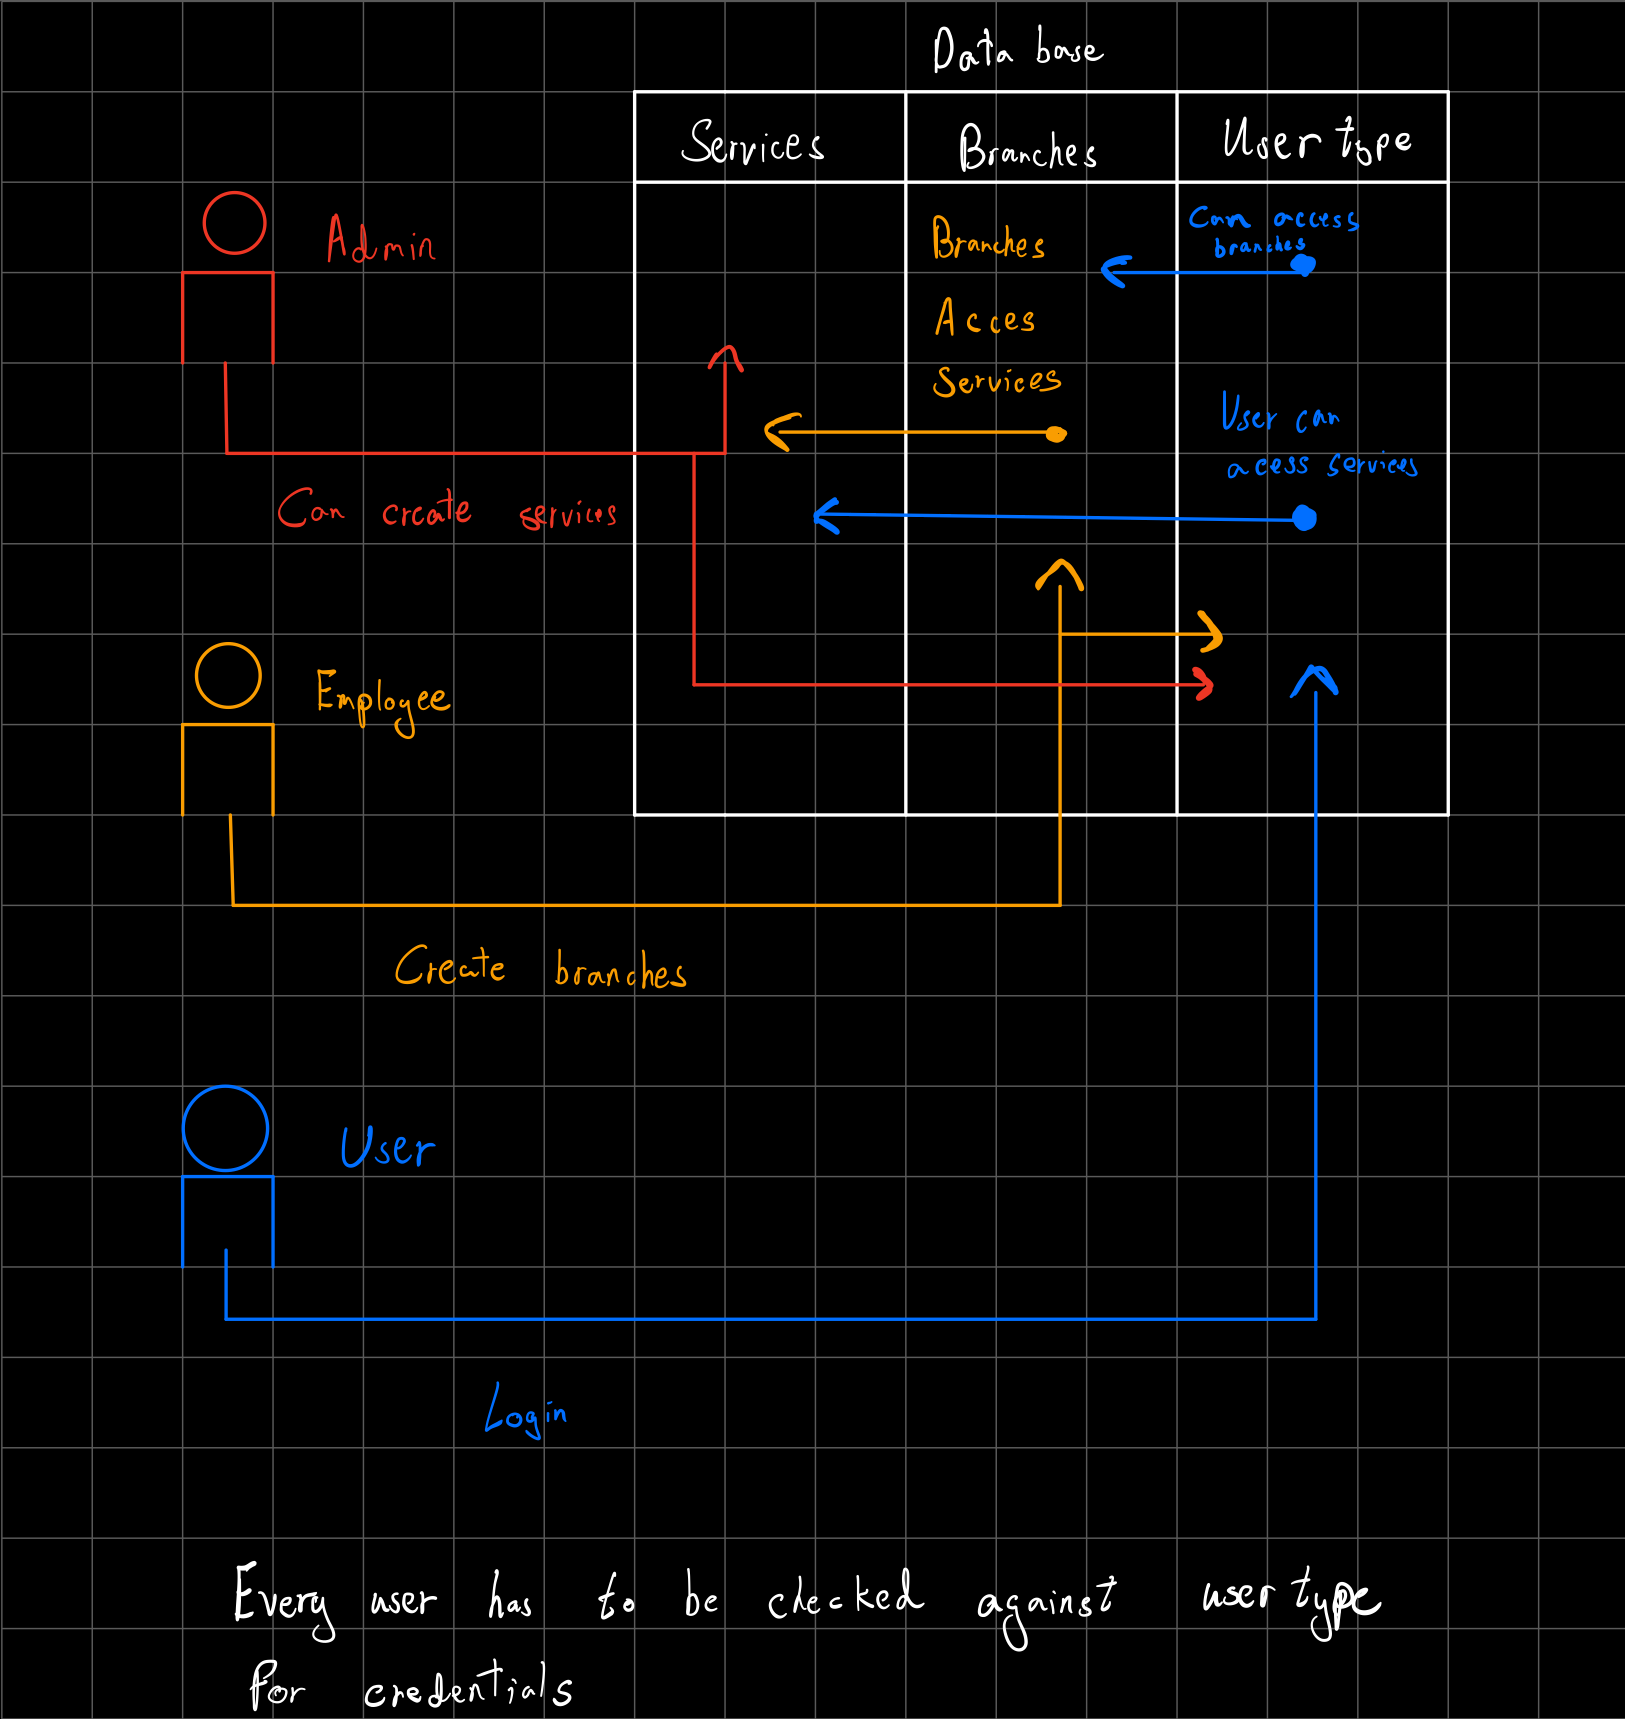 Data base
Services Branches User type
Admin
Branches
Acces
Services
Can access
branches
User can
acess services
Can create services
Employee
Create branches
User
Login
Every user has to be checked against user type
for credentials